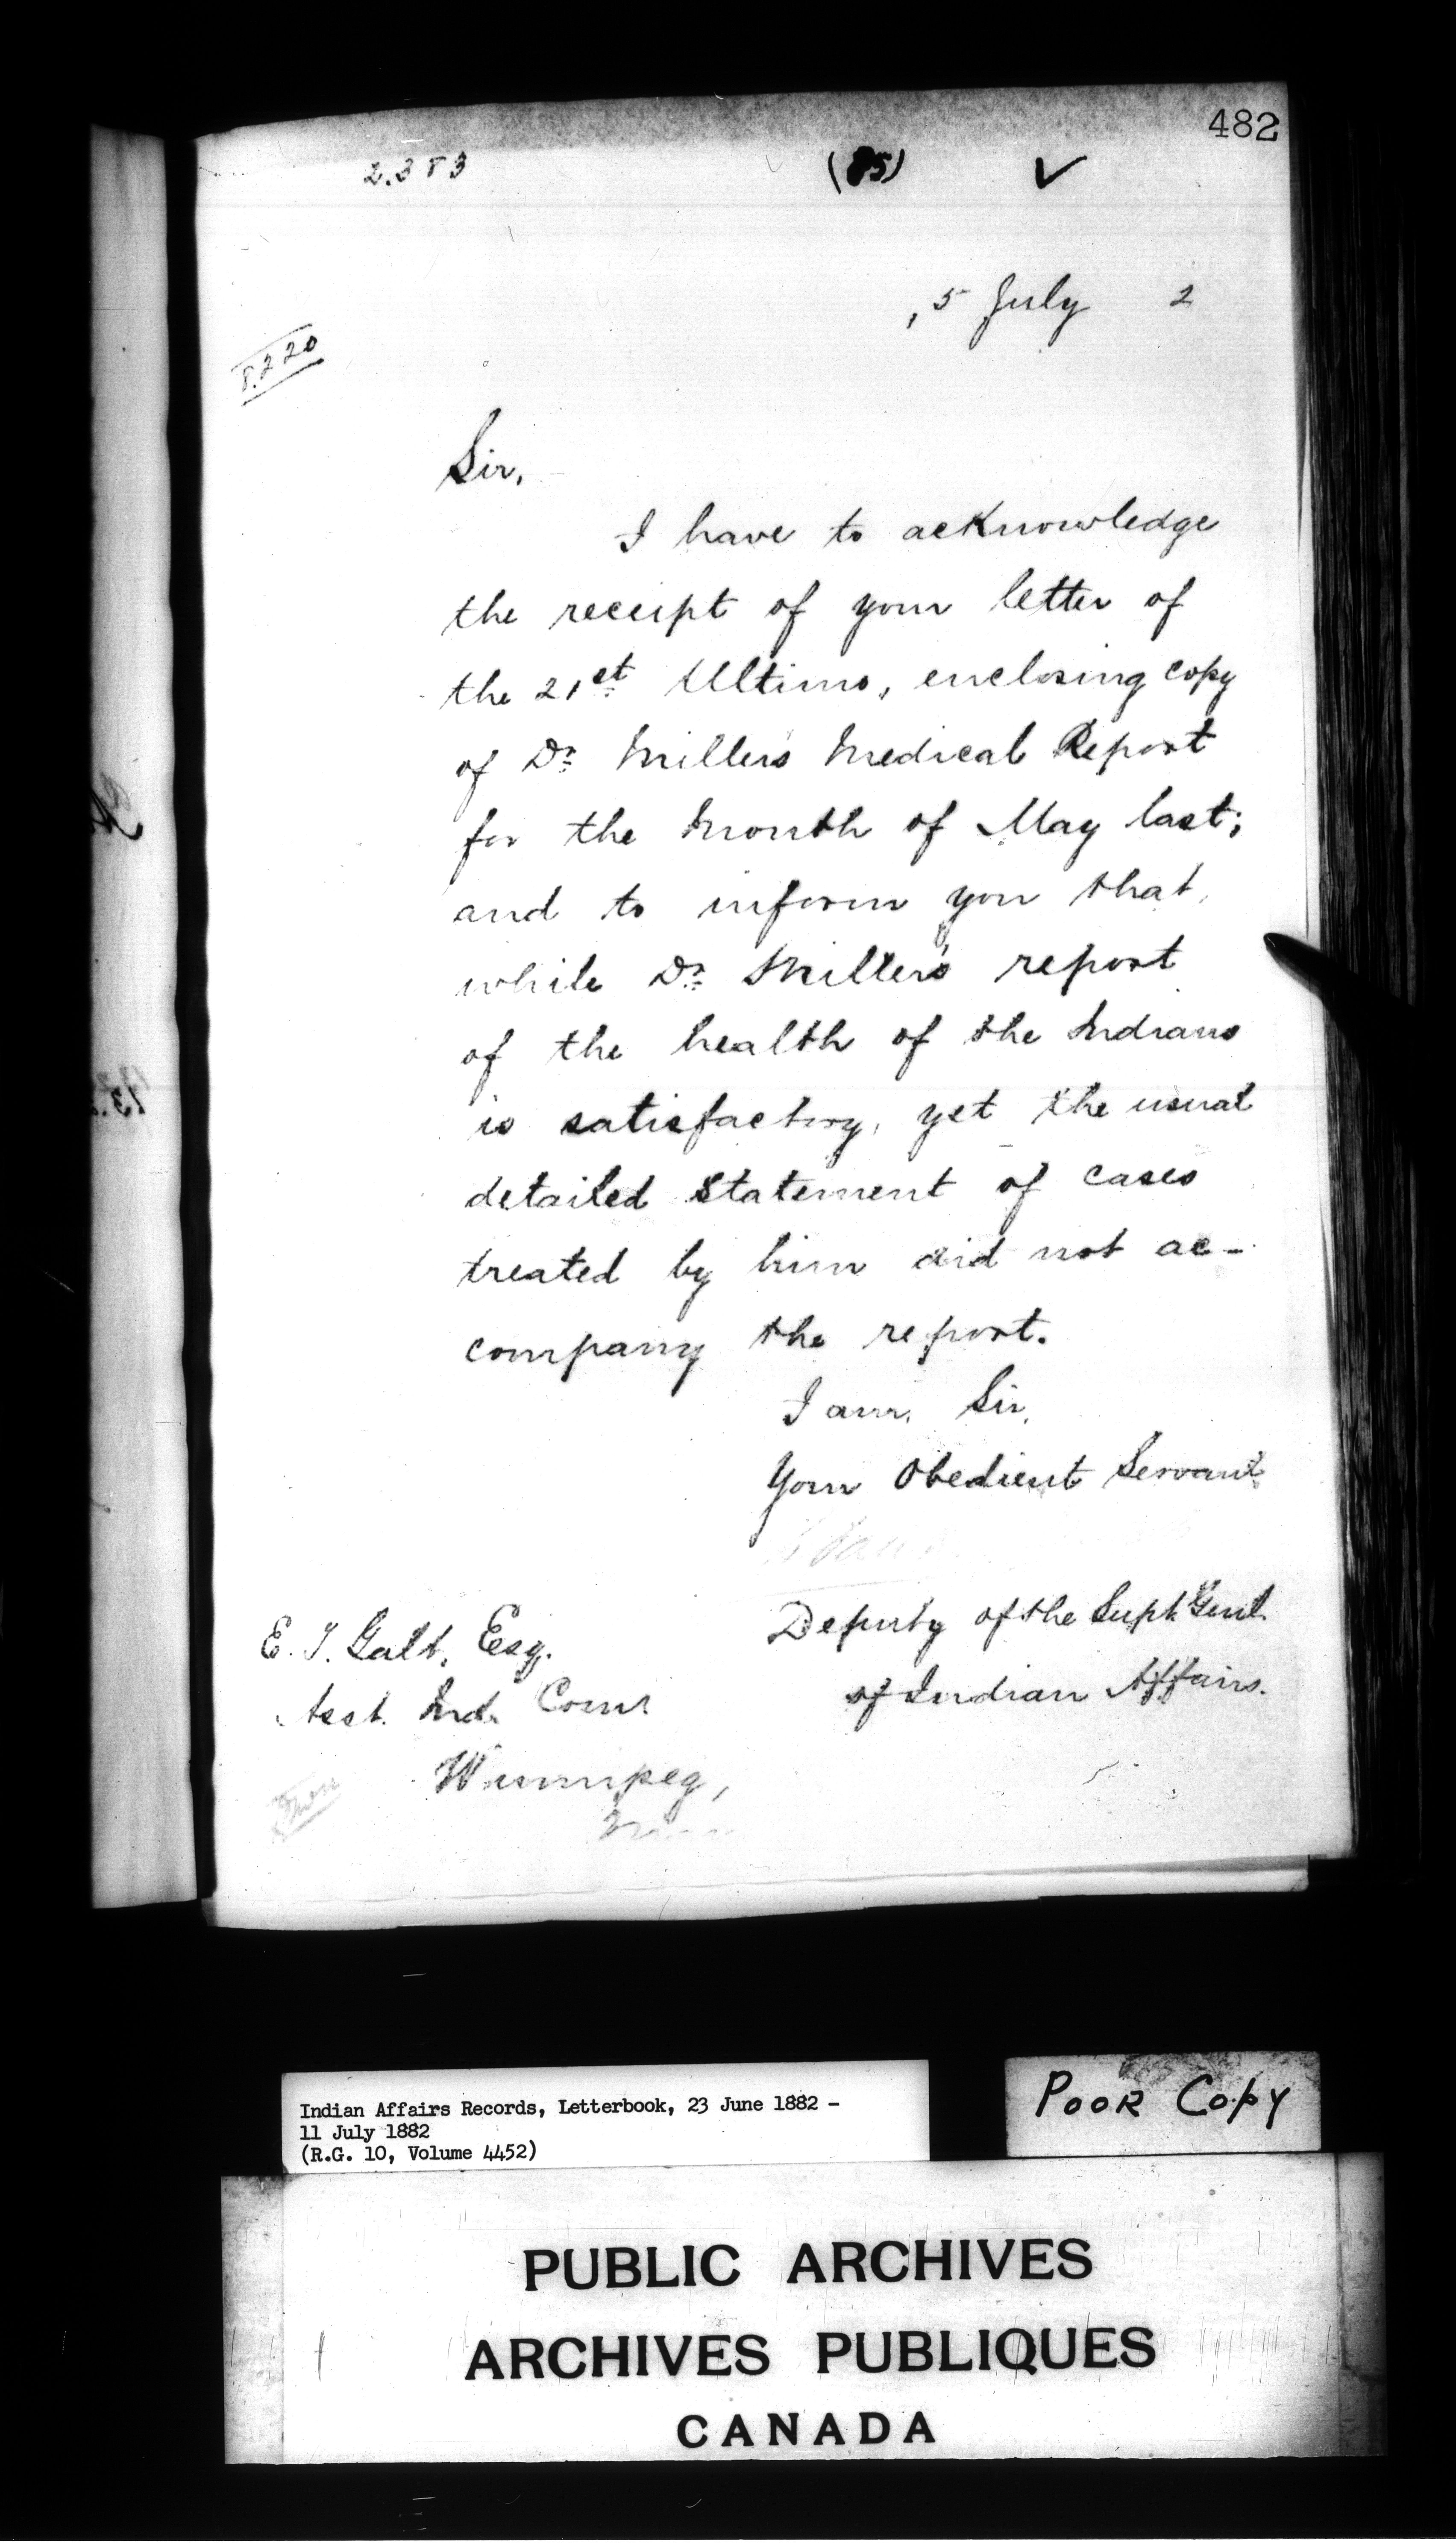 482
2.383 (85) ✓
5 July 2
8.220
Sir,
I have to acknowledge
the receipt of your letter of
the 21st Ultimo, enclosing copy
of Dr Millers Medical Report
for the Month of May last;
and to inform you that,
while Dr Miller's report
of the health of the Indians
is satisfactory, yet the usual
detailed statement of cases
treated by him did not ac-
company the report.
I am, Sir,
Your Obedient Servant
Deputy of the Supt Genl
of Indian Affairs.
E. T. Galt, Esq.
Asst. Ind. Comr
Winnipeg,
Indian Affairs Records, Letterbook, 23 June 1882 -
11 July 1882
(R.G. 10, Volume 4452)
POOR COPY
PUBLIC ARCHIVES
ARCHIVES PUBLIQUES
CANADA